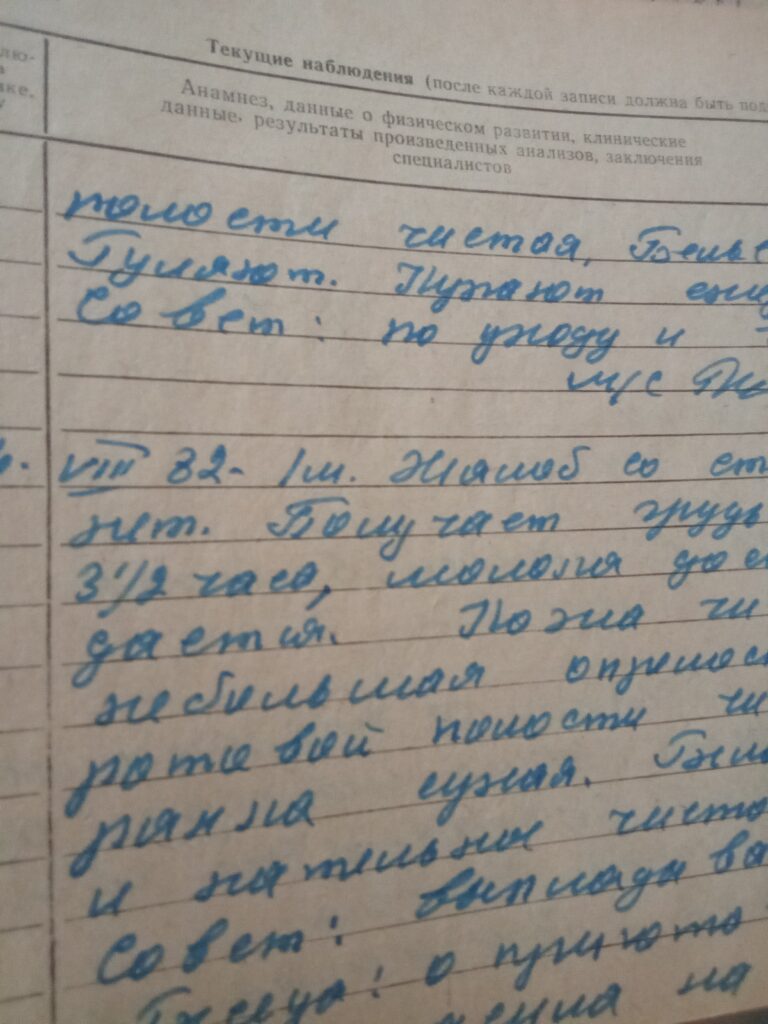 Текущие наблюдения (после каждой записи должна быть под
лю-
Анамнез, данные о физическом развитии, клинические
данные, результаты произведенных анализов, заключения
специалистов
полости чистая, Белье
Гуляют. Купают еже
Совет: по уходу и
м/с
VIII 82- 1м. Жалоб со ст
нет. Получает грудь
3 1/2 часа, молока дос
дается. Кожа чи
небольшая опрелос
ротовой полости чи
ранка сухая. Бель
и нательное чисто
Совет: выкладыва
Беседа: о пригото
на